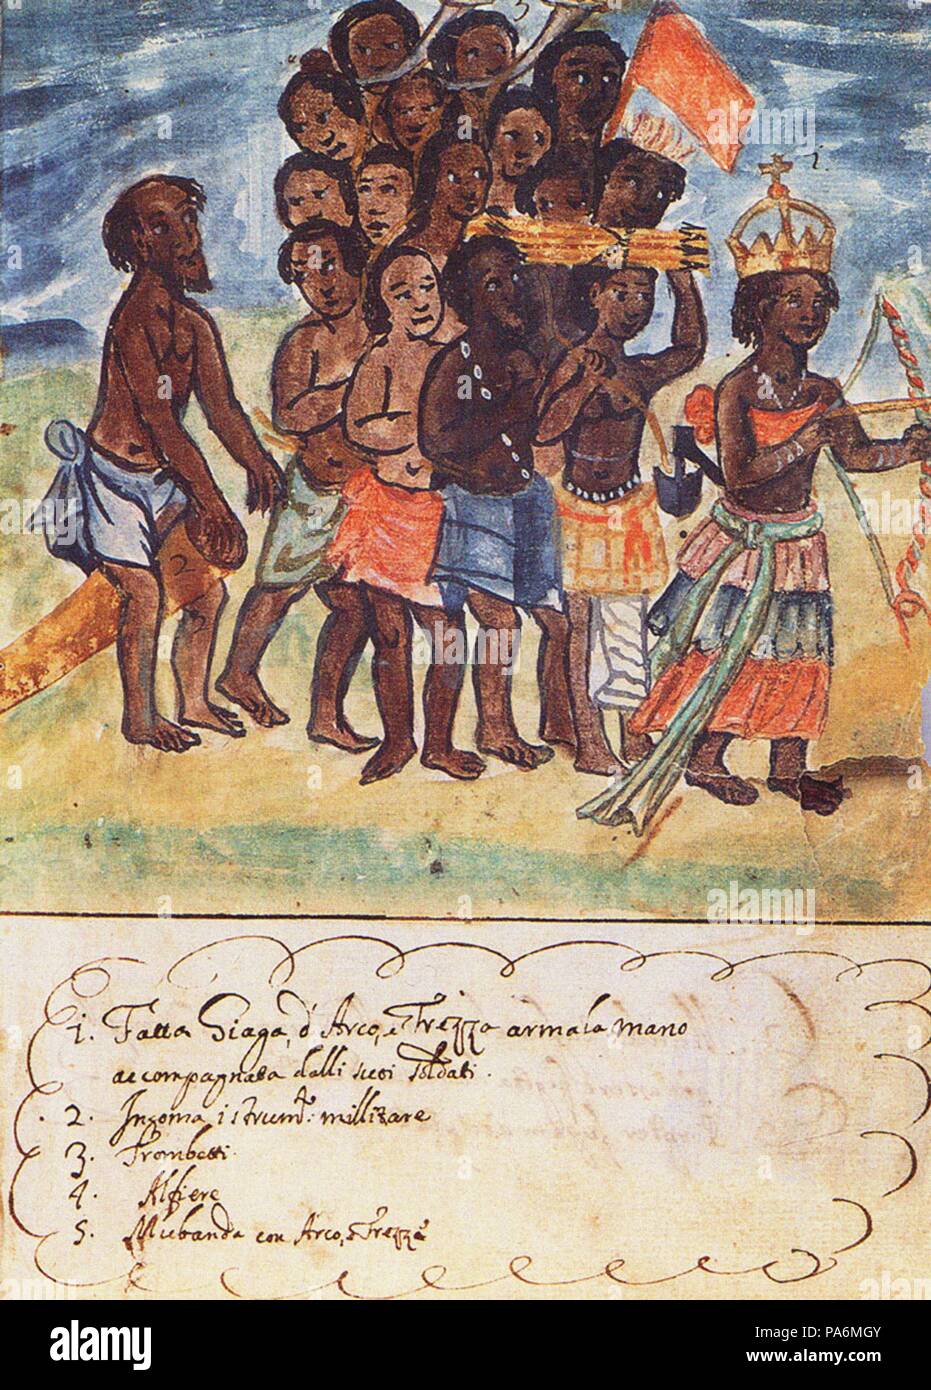 3
1
2
1. Fatta Giaga, d' Arco, e Frezza armata mano
accompagnata dalli suoi soldati.
2. Ingoma istrumto: millitare
3. Trombetti.
4. Alfiere
5. con Arco, e Frezze
alamy stock photo
PA6MGY
www.alamy.com